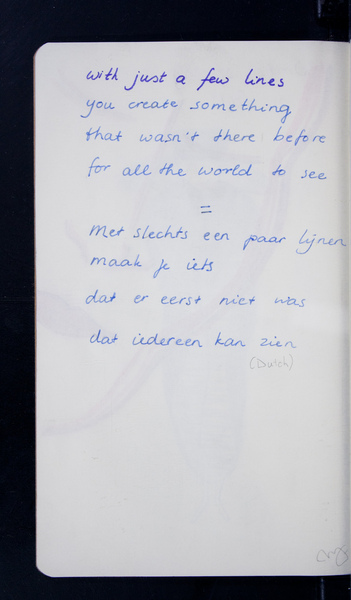 with just a few lines
you create something
that wasn't there before
for all the world to see
=
Met slechts een paar lijnen
maak je iets
dat er eerst niet was
dat iedereen kan zien
(Dutch)